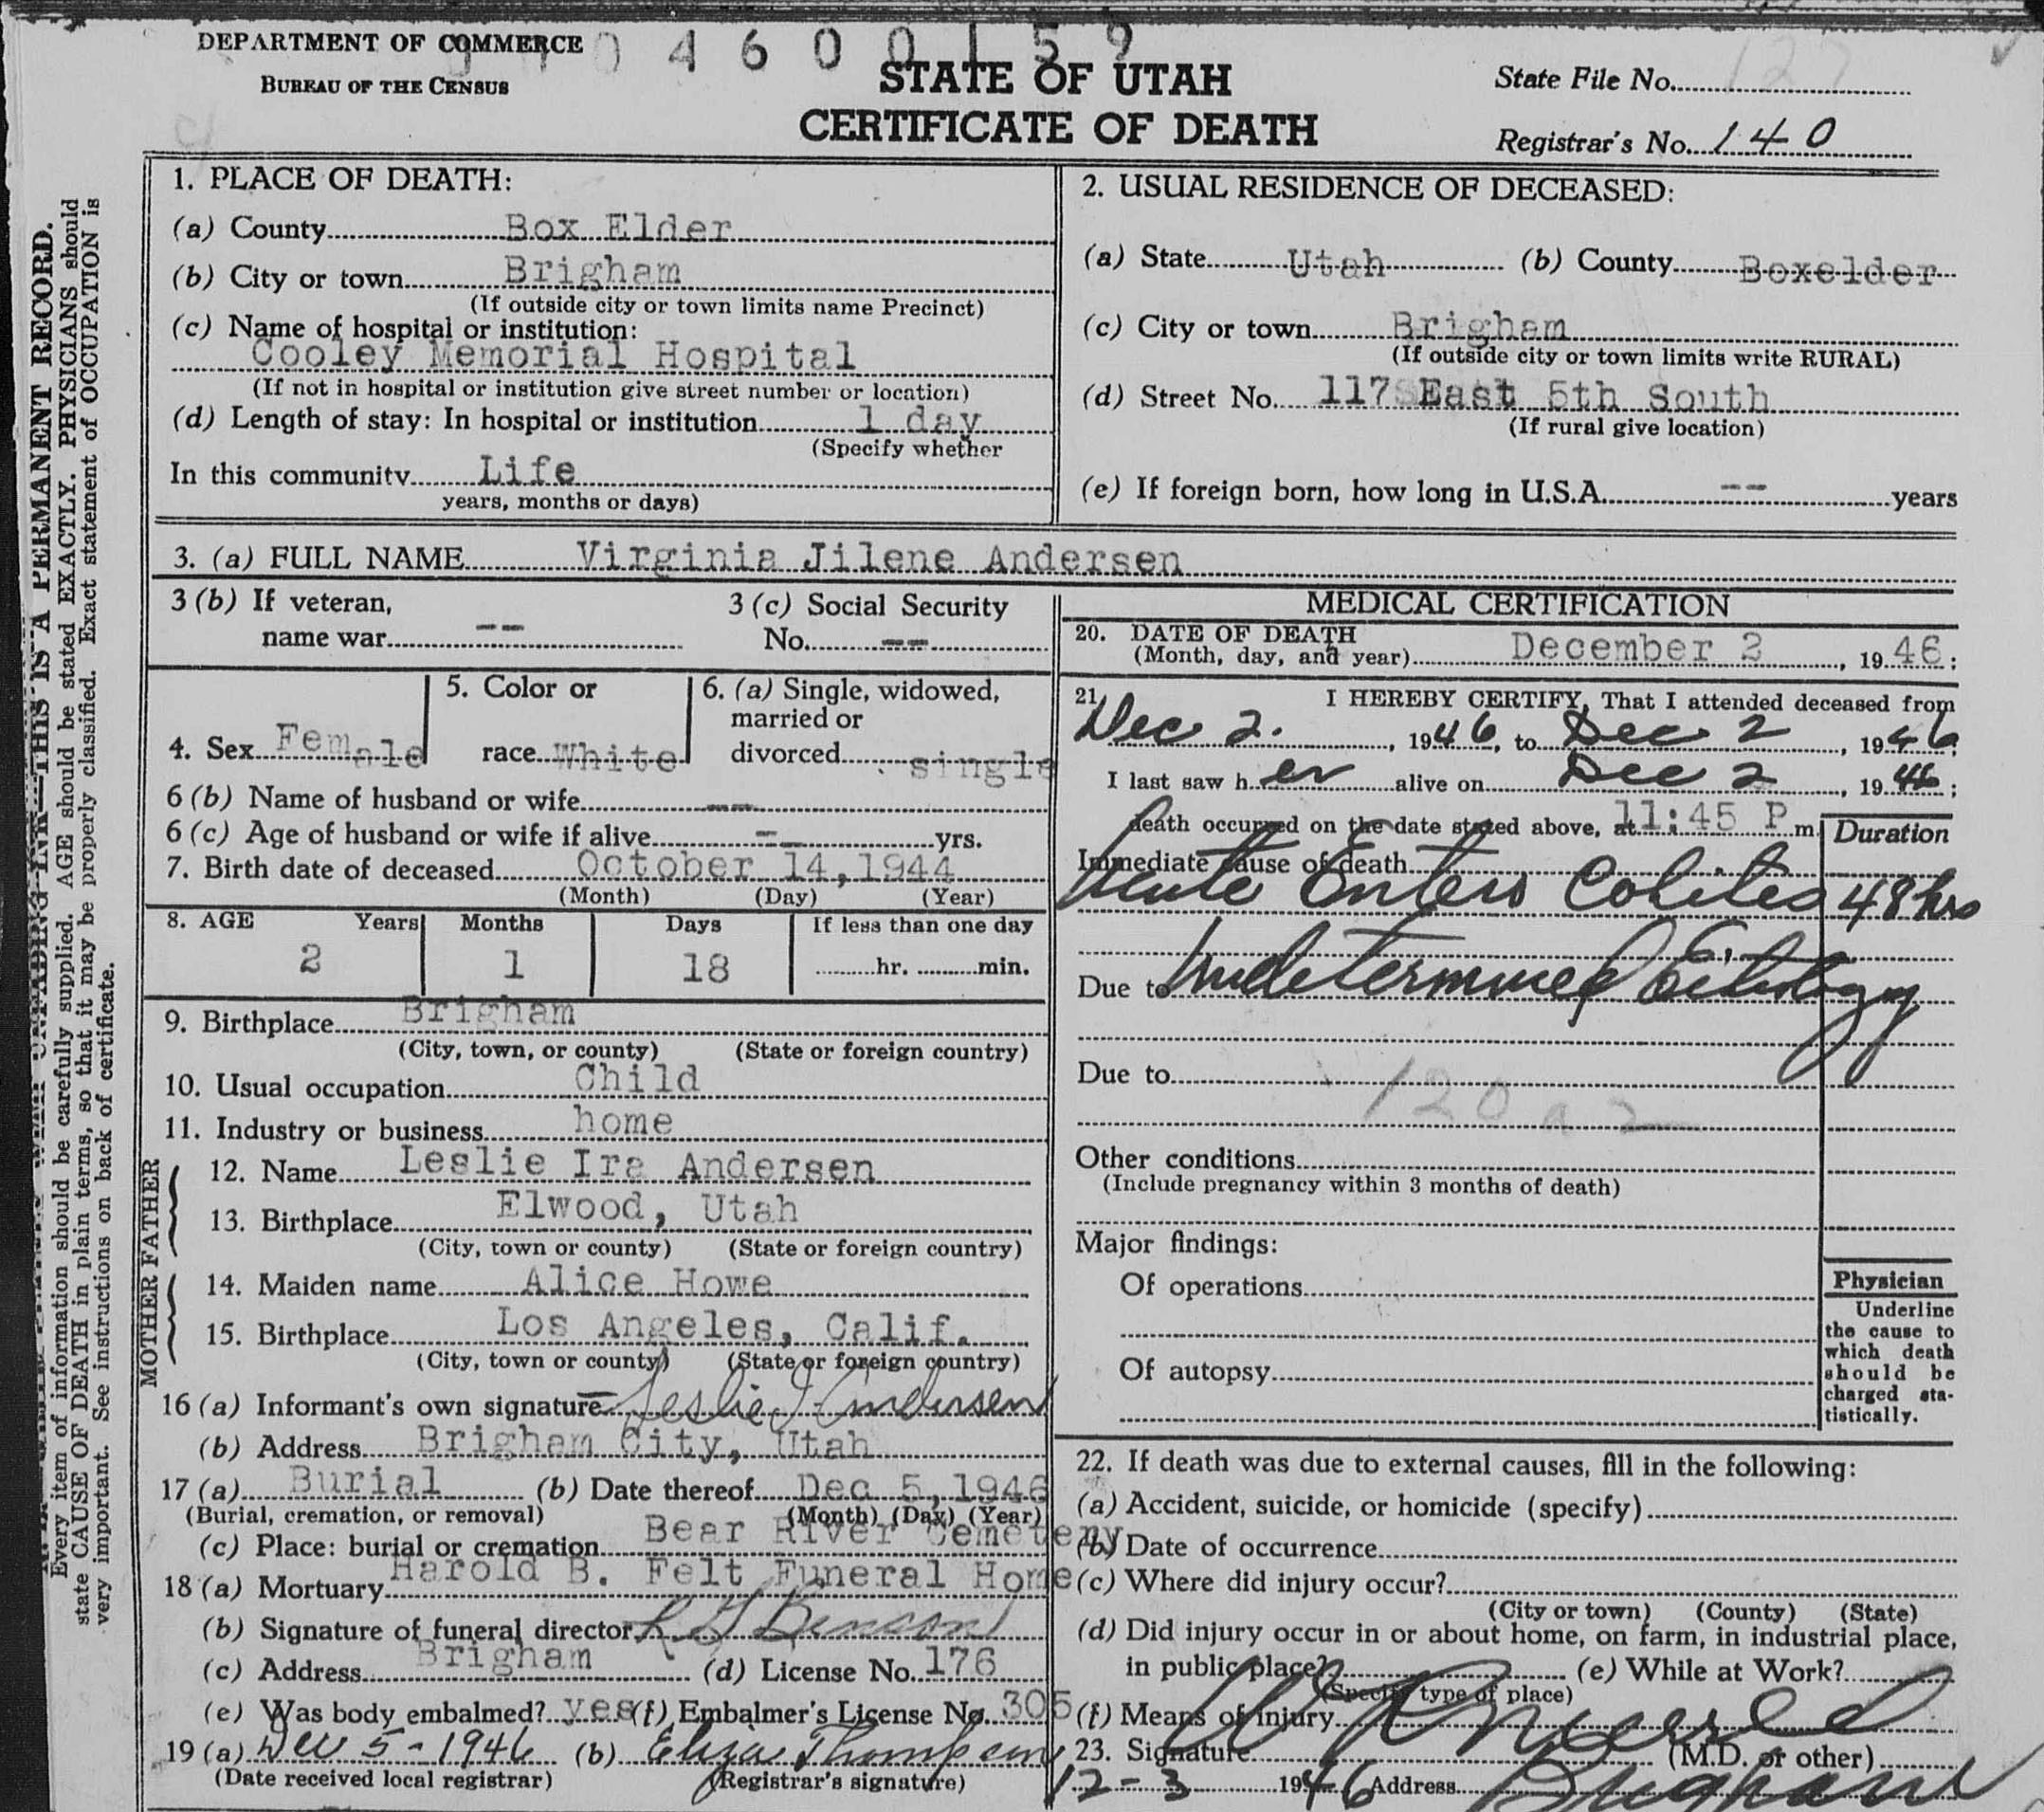 DEPARTMENT OF COMMERCE
BUREAU OF THE CENSUS
0 4 6 0 0 1 5 9
STATE OF UTAH
CERTIFICATE OF DEATH
State File No. 127
Registrar's No. 140
THIS IS A PERMANENT RECORD.
Every item of information should be carefully supplied. AGE should be stated EXACTLY. PHYSICIANS should
state CAUSE OF DEATH in plain terms, so that it may be properly classified. Exact statement of OCCUPATION is
very important. See instructions on back of certificate.
1. PLACE OF DEATH:
(a) County Box Elder
(b) City or town Brigham
(If outside city or town limits name Precinct)
(c) Name of hospital or institution:
Cooley Memorial Hospital
(If not in hospital or institution give street number or location)
(d) Length of stay: In hospital or institution 1 day
(Specify whether
In this community Life
years, months or days)
2. USUAL RESIDENCE OF DECEASED:
(a) State Utah (b) County Boxelder
(c) City or town Brigham
(If outside city or town limits write RURAL)
(d) Street No. 117 East 5th South
(If rural give location)
(e) If foreign born, how long in U.S.A. -- years
3. (a) FULL NAME Virginia Jilene Andersen
3 (b) If veteran,
name war --
3 (c) Social Security
No. --
4. Sex Female
5. Color or
race White
6. (a) Single, widowed,
married or
divorced single
6 (b) Name of husband or wife --
6 (c) Age of husband or wife if alive -- yrs.
7. Birth date of deceased October 14, 1944
(Month) (Day) (Year)
8. AGE Years Months Days If less than one day
2 1 18 hr. min.
9. Birthplace Brigham
(City, town, or county) (State or foreign country)
10. Usual occupation Child
11. Industry or business home
FATHER
12. Name Leslie Ira Andersen
13. Birthplace Elwood, Utah
(City, town or county) (State or foreign country)
MOTHER
14. Maiden name Alice Howe
15. Birthplace Los Angeles, Calif.
(City, town or county) (State or foreign country)
16 (a) Informant's own signature Leslie I Andersen
(b) Address Brigham City, Utah
17 (a) Burial (b) Date thereof Dec 5, 1946
(Burial, cremation, or removal) (Month) (Day) (Year)
(c) Place: burial or cremation Bear River Cemeteny
18 (a) Mortuary Harold B. Felt Funeral Home
(b) Signature of funeral director Benson
(c) Address Brigham (d) License No. 176
(e) Was body embalmed? yes (f) Embalmer's License No. 305
19 (a) Dec 5 - 1946 (b) Eliza Thompson
(Date received local registrar) (Registrar's signature)
MEDICAL CERTIFICATION
20. DATE OF DEATH
(Month, day, and year) December 2, 1946;
21. I HEREBY CERTIFY, That I attended deceased from
Dec 2., 1946, to Dec 2, 1946;
I last saw her alive on Dec 2, 1946;
death occurred on the date stated above, at 11:45 P m.
Duration
Immediate cause of death
Acute Entero Colitis 48 hrs
Due to Undetermined Eitology
Due to
120 a 2
Other conditions
(Include pregnancy within 3 months of death)
Major findings:
Of operations
Of autopsy
Physician
Underline
the cause to
which death
should be
charged sta-
tistically.
22. If death was due to external causes, fill in the following:
(a) Accident, suicide, or homicide (specify)
(b) Date of occurrence
(c) Where did injury occur?
(City or town) (County) (State)
(d) Did injury occur in or about home, on farm, in industrial place,
in public place? (e) While at Work?
(Specify type of place)
(f) Means of injury
23. Signature (M.D. or other)
12-3 1946 Address Brigham